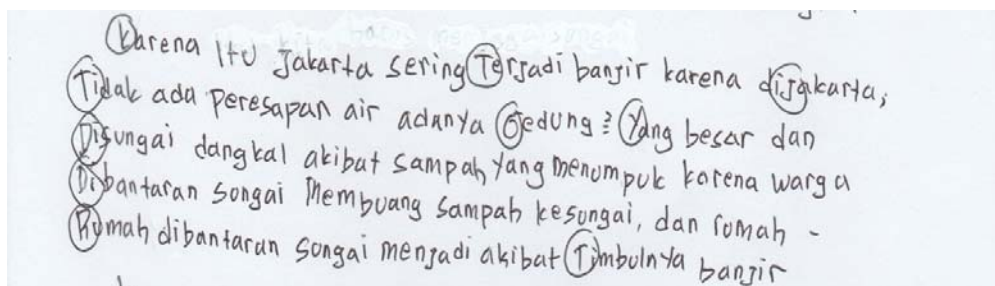 Karena Itu Jakarta sering Terjadi banjir karena diJakarta,
Tidak ada peresapan air adanya Gedung² Yang besar dan
Disungai dangkal akibat sampah yang menumpuk karena warga
Dibantaran sungai Membuang sampah kesungai, dan rumah -
Rumah dibantaran sungai menjadi akibat Timbulnya banjir